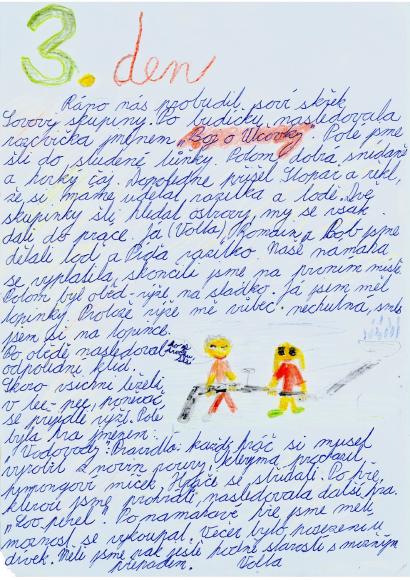 3. den
Ráno nás probudil soví skřek
Sovovy skupiny. Po budíčku následovala
rozcvička jménem „Boj o Vlčovky". Poté jsme
šli do studené tůňky. Potom dobrá snídaně
a horký čaj. Dopoledne přišel Hopar a řekl,
že si máme udělat razítka a lodě. Dvě
skupinky šli hledat ostrovy, my se však
dali do práce. Já (Volta), Romain a Bob jsme
dělali loď a Piďa razítko. Naše námaha
se vyplatila, skončili jsme na prvním místě.
Potom byl oběd - rýže, na sladko. Já jsem měl
topinky. Protože rýže mě vůbec nechutná, smls
jsem si na topince.
Po obědě následoval
odpolední klid.
Skoro všichni leželi
v tee-pee, poněvač
se přejedli rýží. Poté
byla hra jménem:
Vodovody: Pravidla: každý hráč si musel
vyrobit z novin roury, kterýma procházel
pympongový míček. Hráče se střídali. Po hře,
kterou jsme prohráli, následovala další hra.
„Lov perel". Po namáhavé hře jsme měli
možnost se vykoupat. Večer bylo posezení u
dívek. Měli jsme však ještě hodně starostí s možným
přepadem. Volta